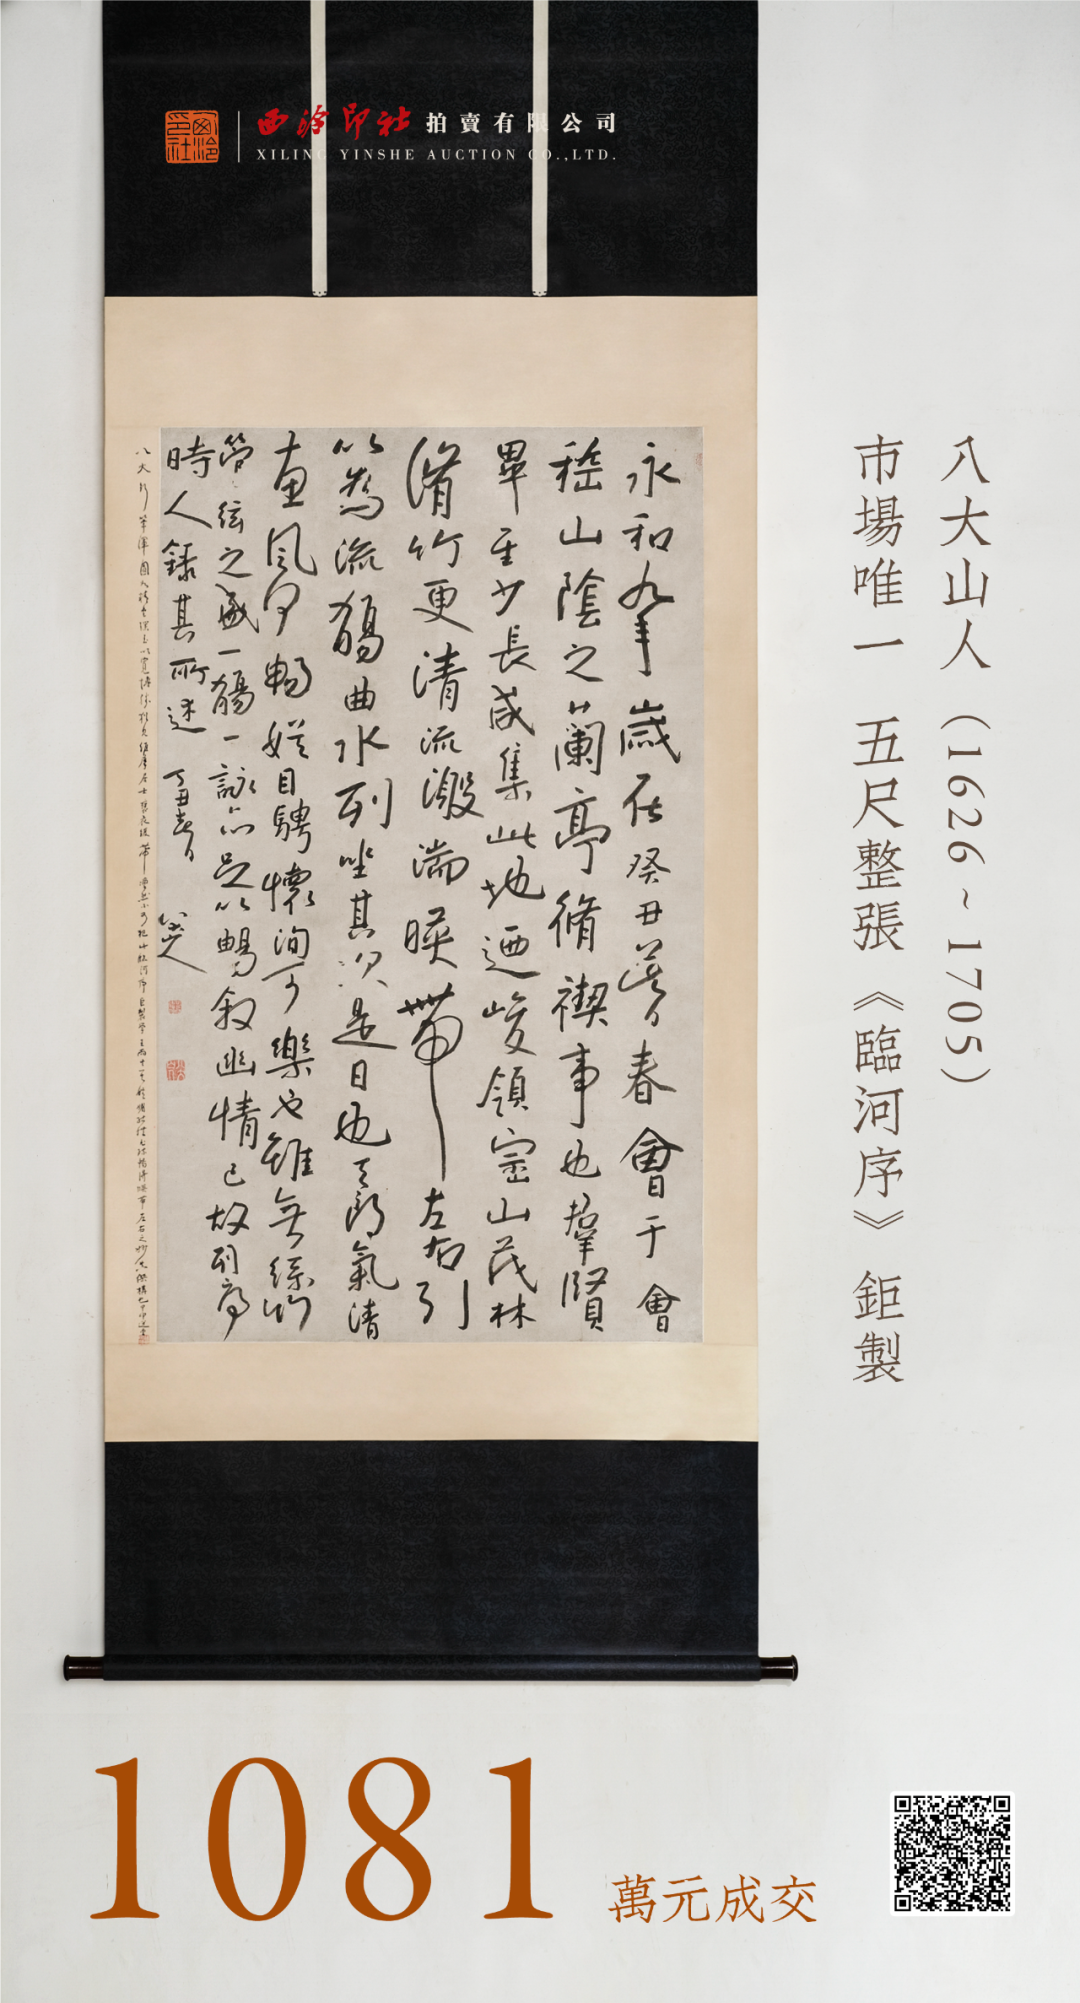 西泠印社
西泠印社拍賣有限公司
XILING YINSHE AUCTION CO.,LTD.
八大山人（1626~1705）
市場唯一 五尺整張《臨河序》鉅製
永和九年歲在癸丑暮春會于會
稽山陰之蘭亭脩禊事也羣賢
畢至少長咸集此地迺峻領崇山茂林
脩竹更清流激湍暎帶左右引
以為流觴曲水列坐其次是日也天朗氣清
惠風和暢娛目騁懷洵可樂也雖無絲竹
管弦之盛一觴一詠亦足以暢敘幽情已故列序
時人錄其所述 丁丑春日 八大山人
1081 萬元成交